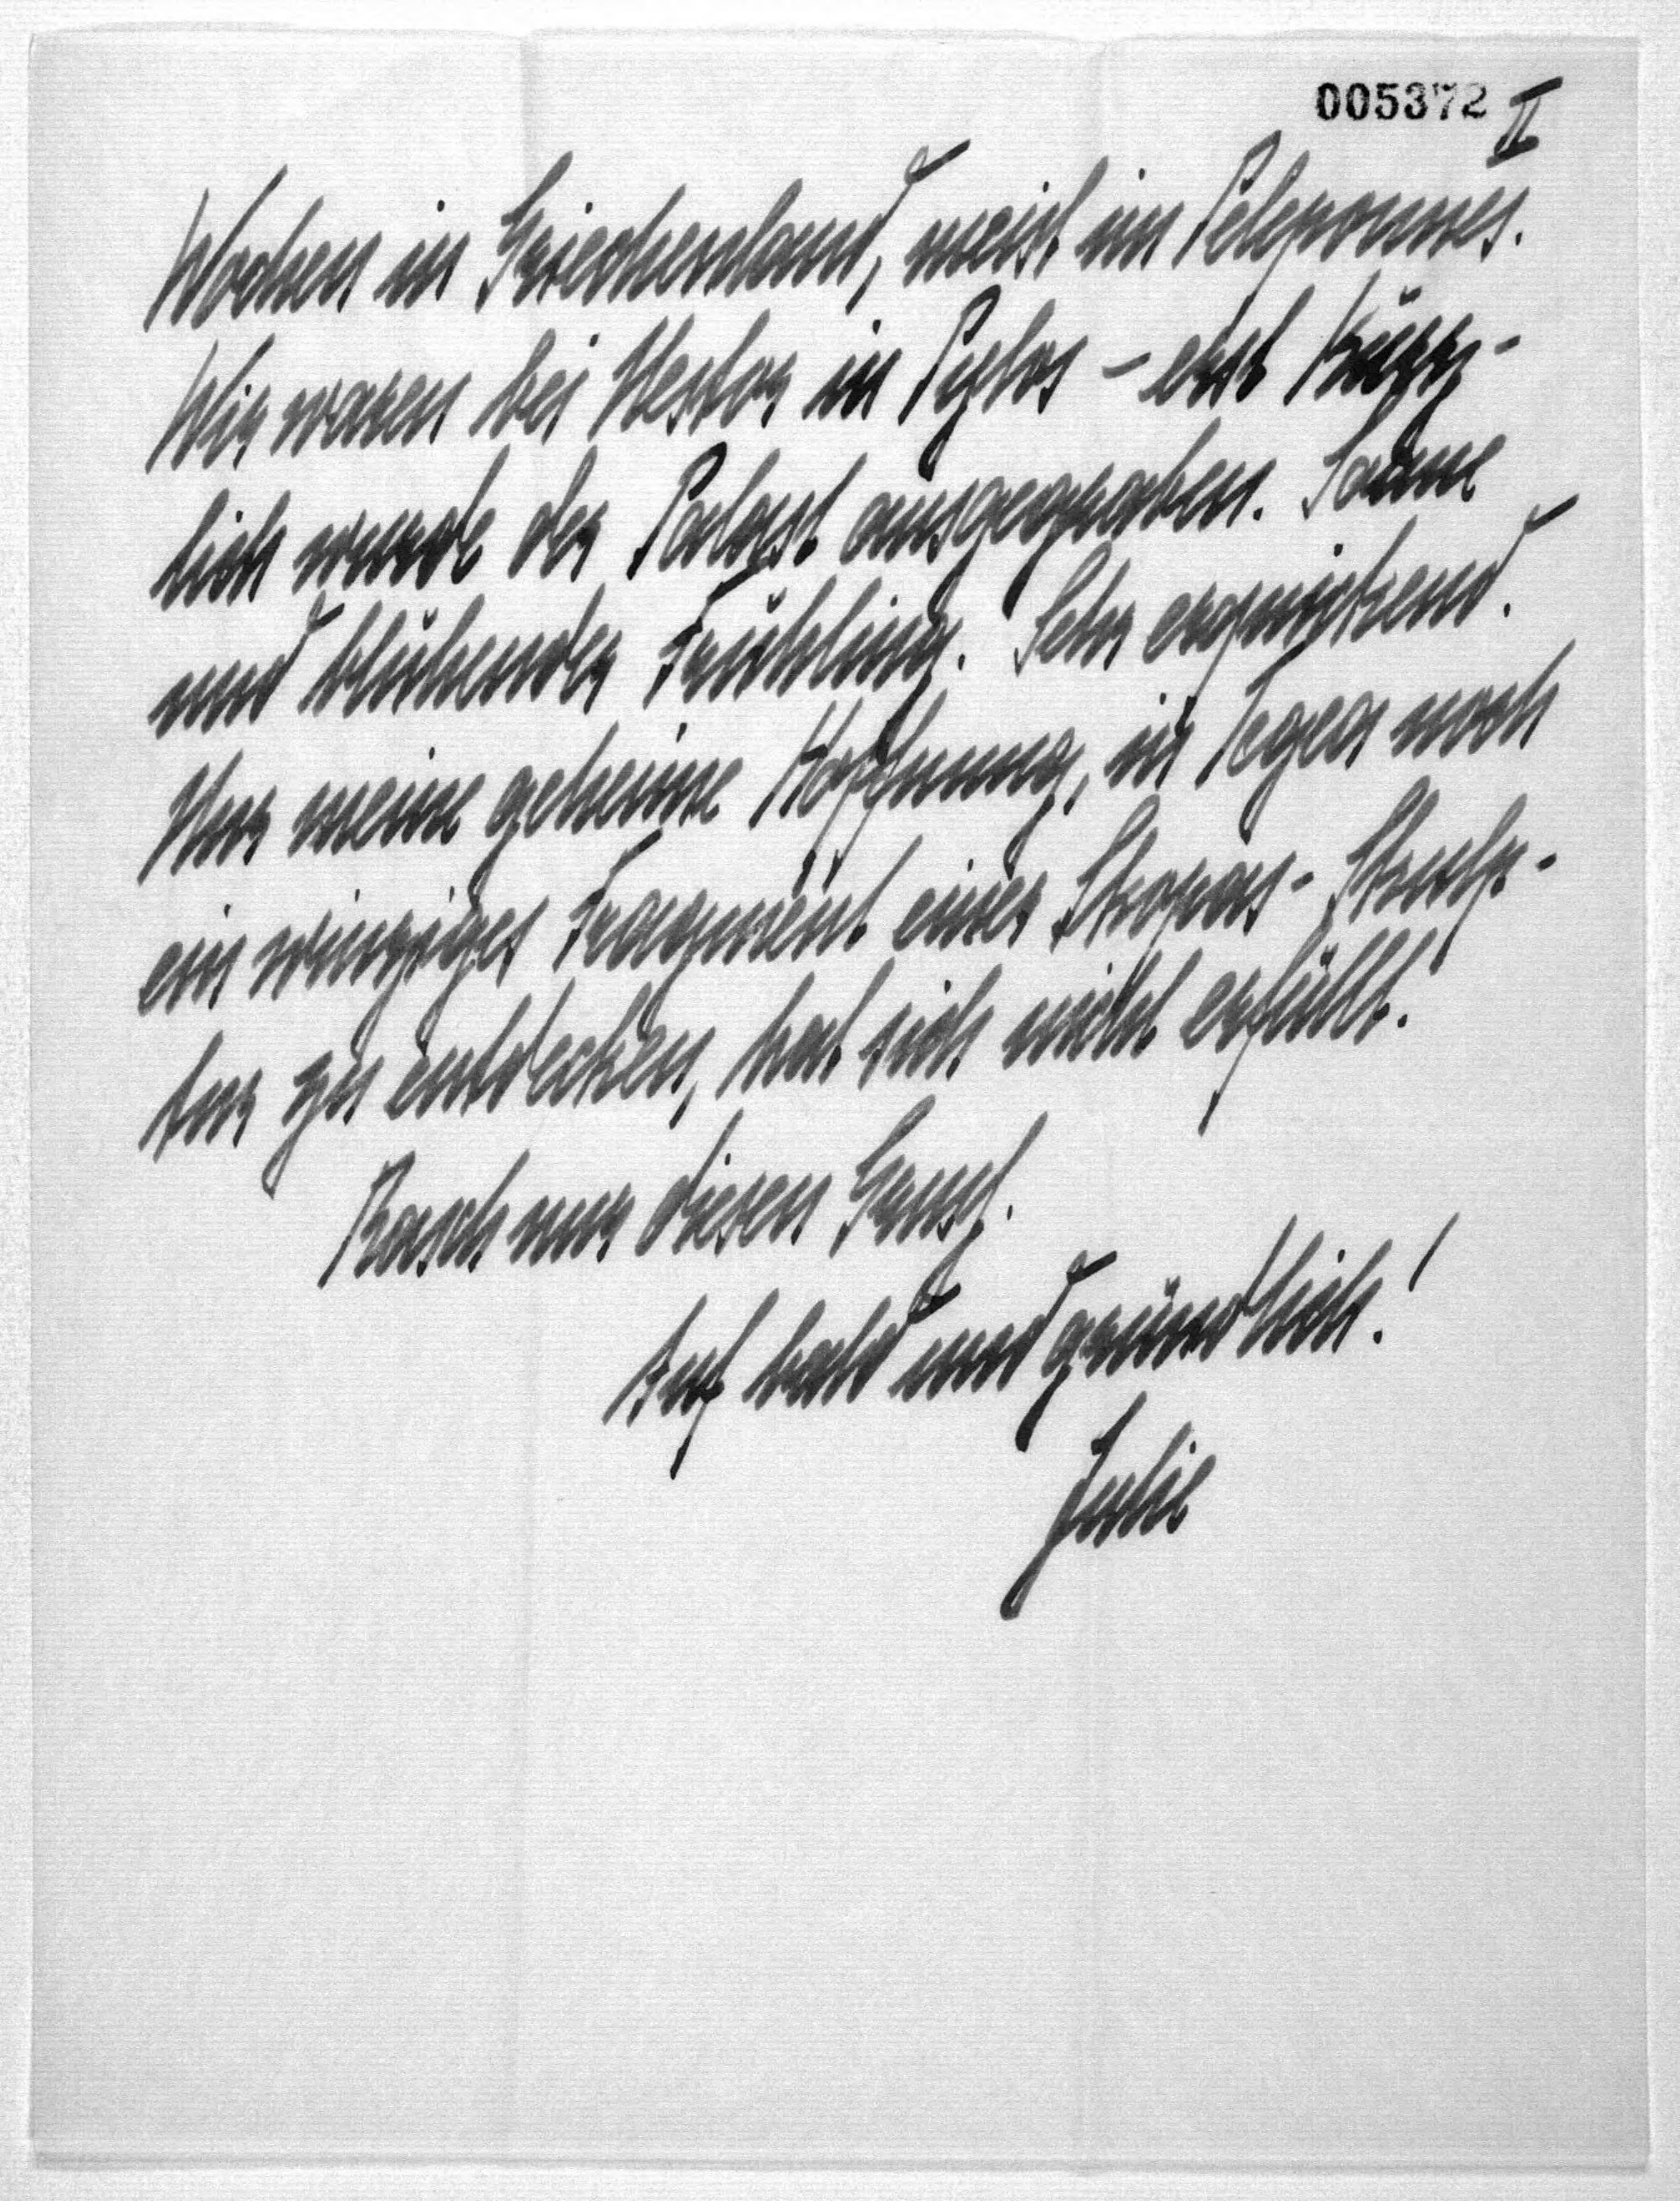 005372 II
Wochen in Griechenland, meist im Peleponnes.
Wir waren bei Nestor in Pylos – erst kürz-
lich wurde der Palast ausgegraben. Sonne
und blühender Frühling. Sehr erquickend.
Nur meine geheime Hoffnung, in Tegea noch
ein winziges Fragment einer Skopas-Skulp-
tur zu entdecken, hat sich nicht erfüllt.
Rasch nur diesen Gruß.
Auf bald und gründlich!
Julie